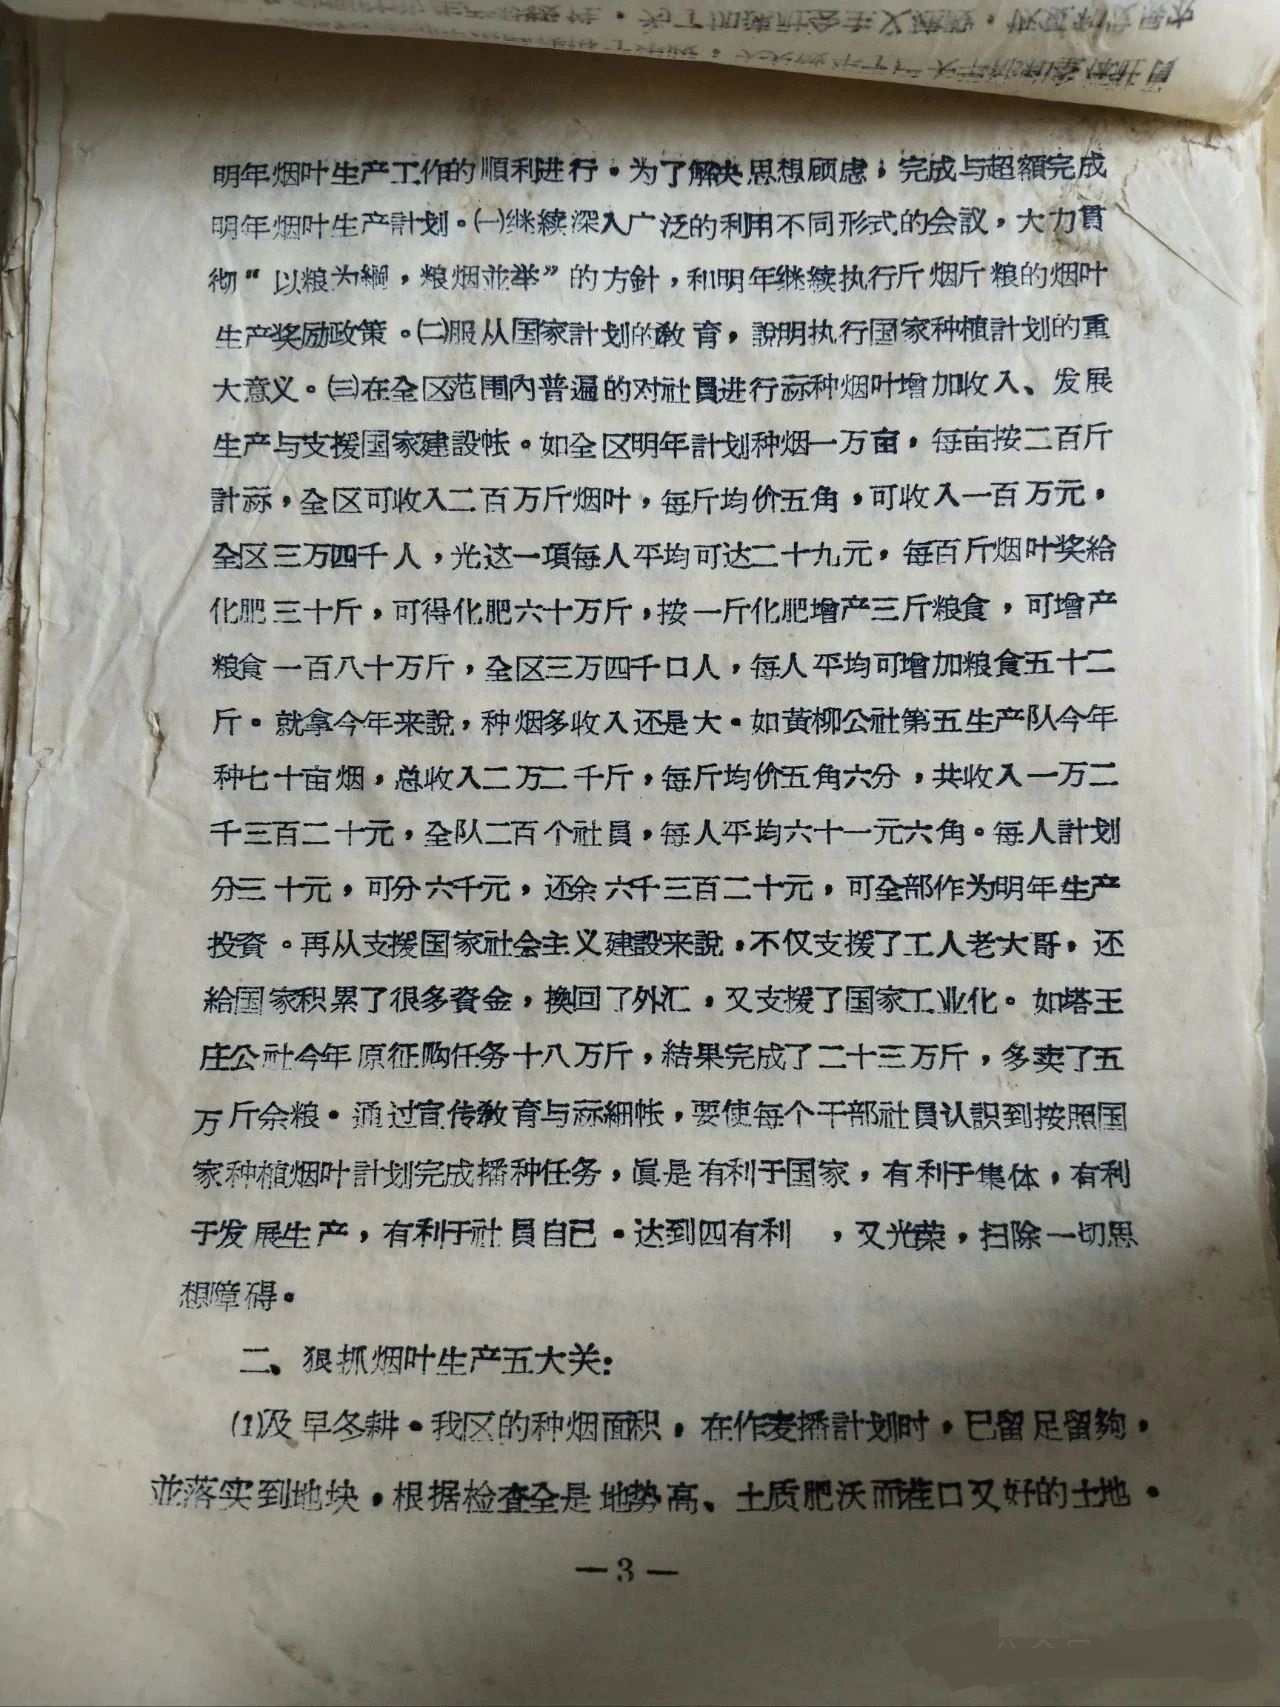 明年烟叶生产工作的順利进行。为了解决思想顾虑，完成与超額完成
明年烟叶生产計划。㈠继續深入广泛的利用不同形式的会議，大力貫
彻“以粮为綱，粮烟並举”的方針，和明年继續执行斤烟斤粮的烟叶
生产奖励政策。㈡服从国家計划的教育，說明执行国家种植計划的重
大意义。㈢在全区范围內普遍的对社員进行祘种烟叶增加收入、发展
生产与支援国家建設帐。如全区明年計划种烟一万亩，每亩按二百斤
計祘，全区可收入二百万斤烟叶，每斤均价五角，可收入一百万元，
全区三万四千人，光这一項每人平均可达二十九元，每百斤烟叶奖給
化肥三十斤，可得化肥六十万斤，按一斤化肥增产三斤粮食，可增产
粮食一百八十万斤，全区三万四千口人，每人平均可增加粮食五十二
斤。就拿今年来說，种烟多收入还是大。如黃柳公社第五生产队今年
种七十亩烟，总收入二万二千斤，每斤均价五角六分，共收入一万二
千三百二十元，全队二百个社員，每人平均六十一元六角。每人計划
分三十元，可分六千元，还余六千三百二十元，可全部作为明年生产
投資。再从支援国家社会主义建設来說，不仅支援了工人老大哥，还
給国家积累了很多資金，換回了外汇，又支援了国家工业化。如塔王
庄公社今年原征购任务十八万斤，結果完成了二十三万斤，多卖了五
万斤余粮。通过宣传教育与祘細帐，要使每个干部社員认識到按照国
家种植烟叶計划完成播种任务，眞是有利于国家，有利于集体，有利
于发展生产，有利于社員自己。达到四有利，又光荣，扫除一切思
想障碍。
二、狠抓烟叶生产五大关：
⑴及早冬耕。我区的种烟面积，在作麦播計划时，已留足留夠，
並落实到地块，根据检查全是地势高、土质肥沃而茬口又好的土地。
—3—